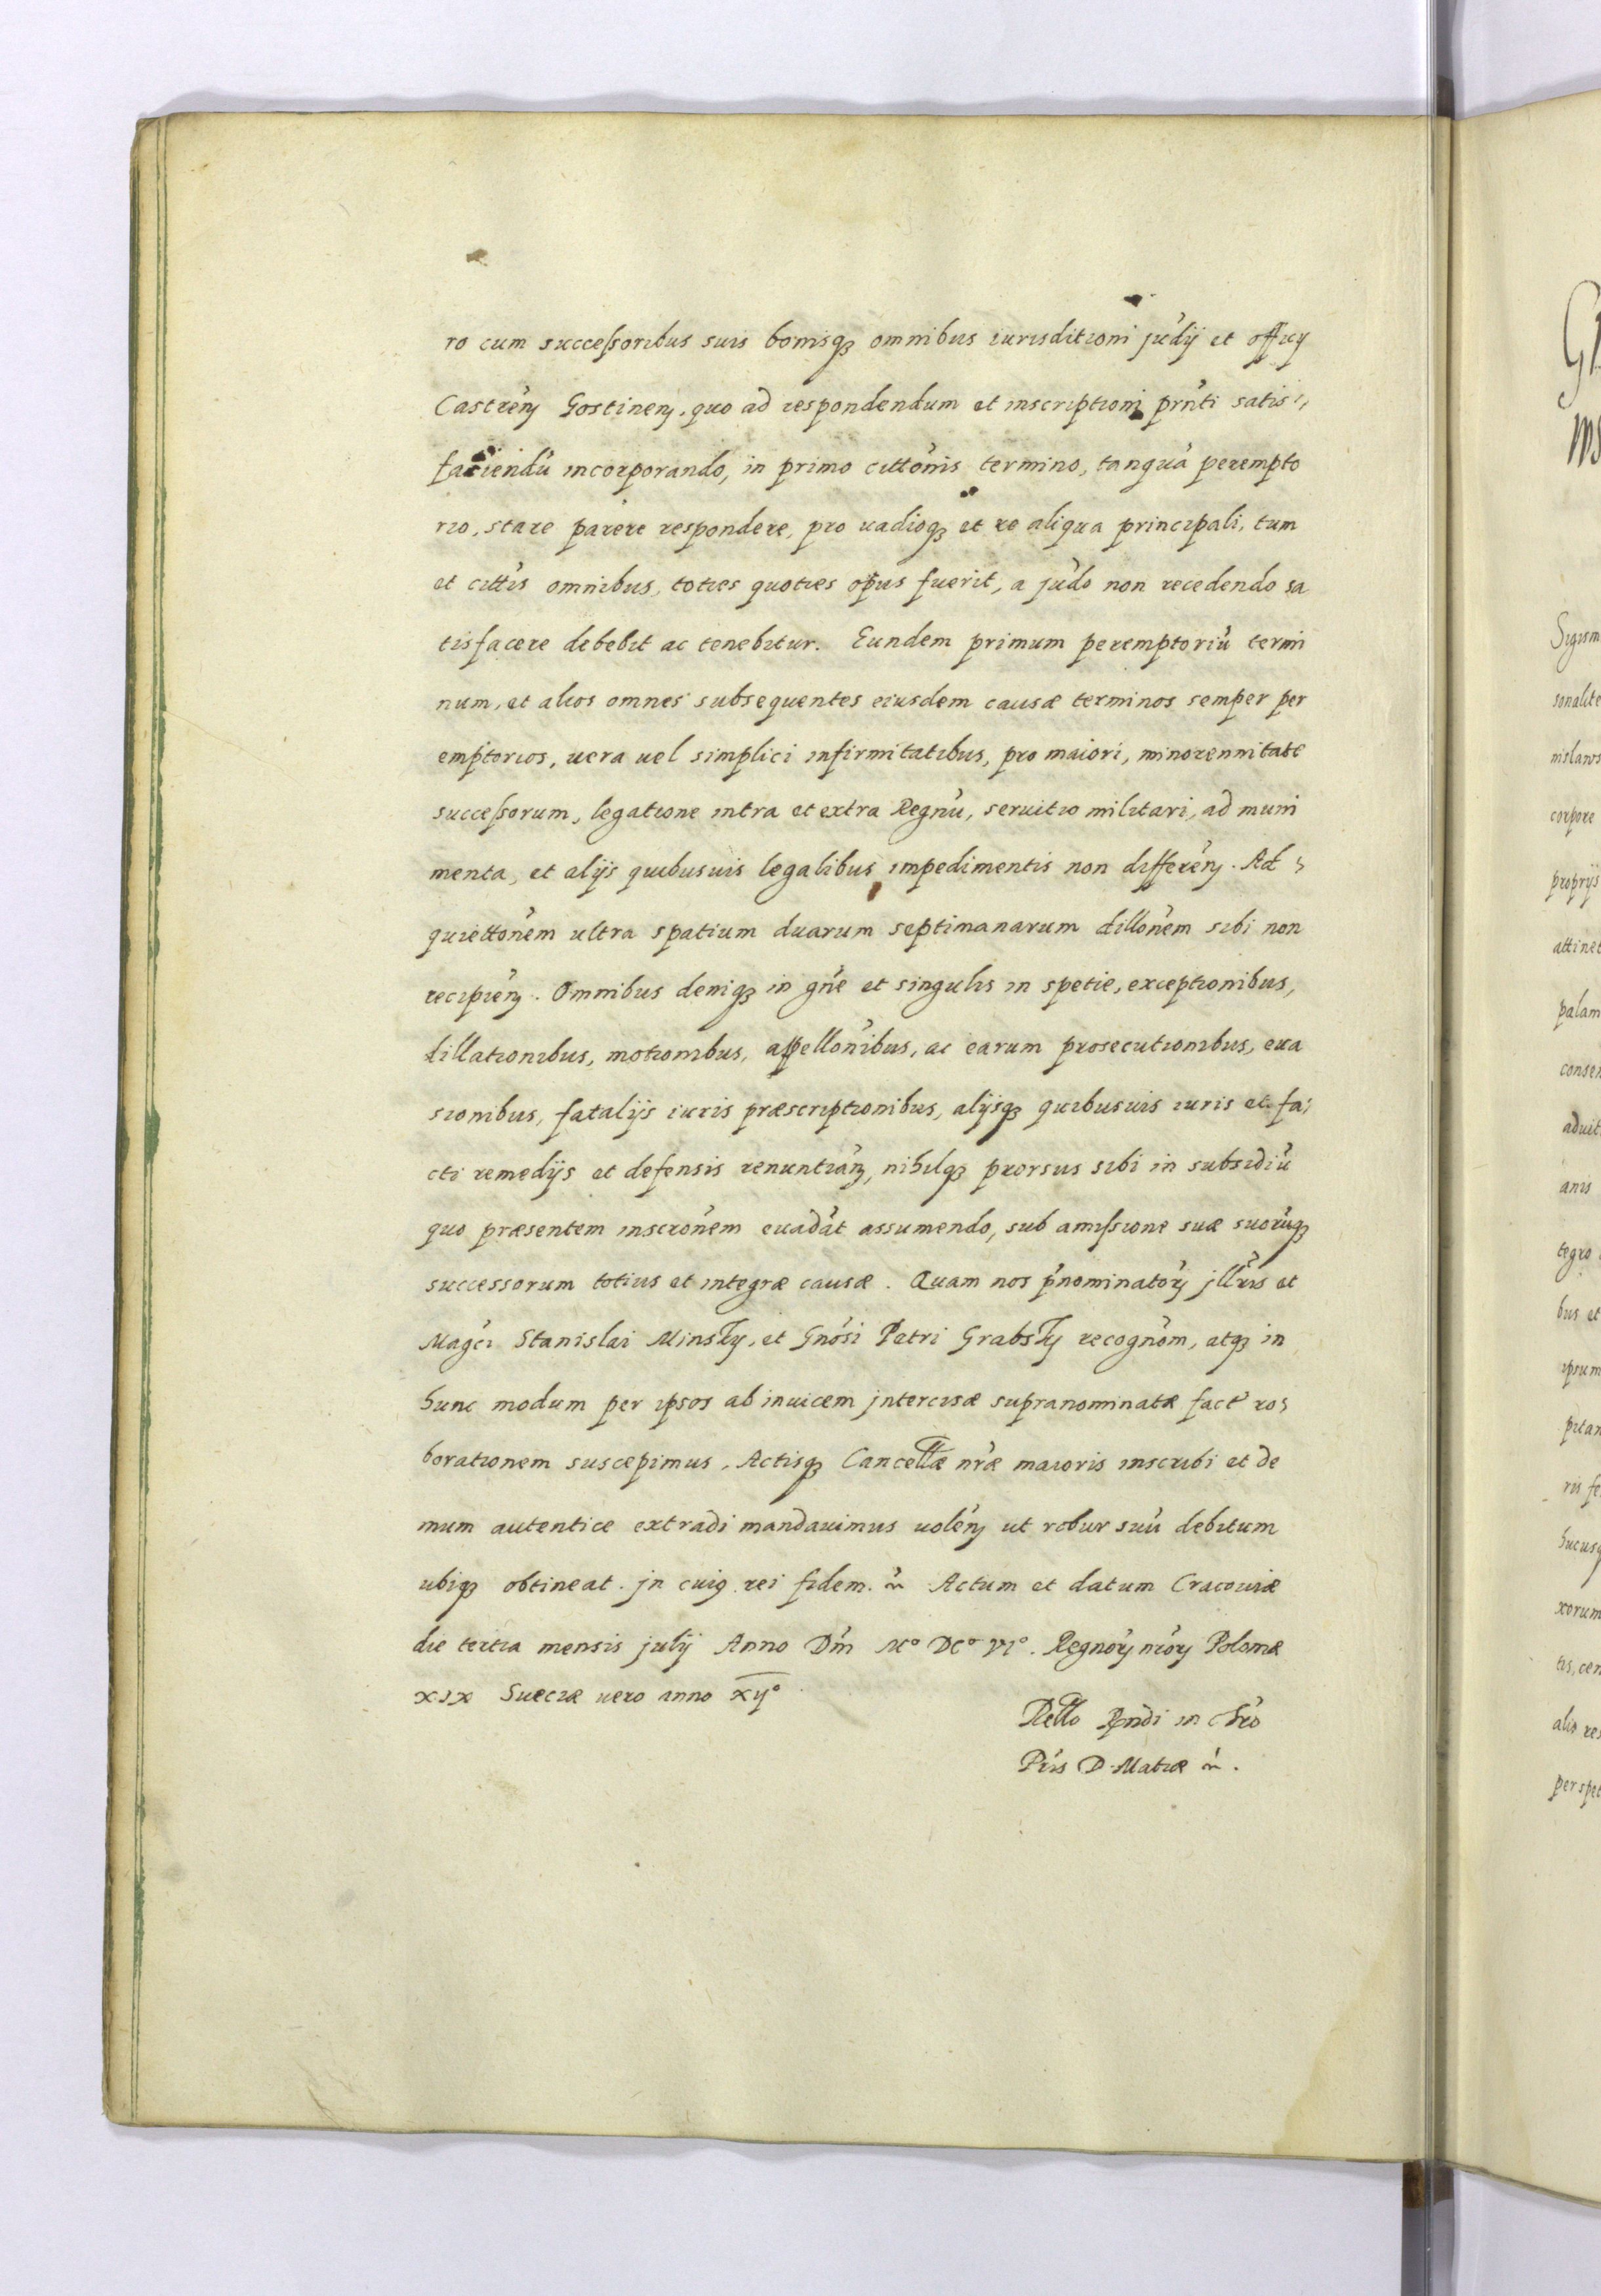 ro cum successoribus suis bonisqꝫ omnibus iurisditioni jud́ij et officij
Castreń Gostineń, quo ad respondendum et inscriptioni prńti satis
faciendú incorporando, in primo cittónis termino, tanquá perempto
rio, stare parere respondere, pro uadioqꝫ et re aliqua principali, tum
et cittís omnibus, toties quoties opus fuerit, a júdo non recedendo sa
tisfacere debebit ac tenebitur. Eundem primum peremptoriú termi
num, et alios omnes subsequentes eiusdem causæ terminos semper per
emptorios, uera uel simplici infirmitatibus, pro maiori, minorennitate
successorum, legatione intra et extra Regnú, seruitio militari, ad muni
menta, et alijs quibusuis legalibus impedimentis non differeń. Ad
quiettónem ultra spatium duarum septimanarum dillónem sibi non
recipień. Omnibus deniqꝫ in gńe et singulis in spetie, exceptionibus,
dillationibus, motionibus, appellónibus, ac earum prosecutionibus, eua
sionibus, fatalijs iuris præscriptionibus, alijsqꝫ quibusuis iuris et fa
cti remedijs et defensis renuntiań, nihilqꝫ prorsus sibi in subsidiú
quo præsentem inscrónem euadát assumendo, sub amissione suæ suorúqꝫ
successorum totius et integræ causæ. Quam nos ṕnominatoŕ jllŕis et
Magći Stanislai Minsky, et Gnósi Petri Grabsky recognóm, atqꝫ in
hunc modum per ipsos ab inuicem intercisæ supranominatæ fact́ ro
borationem suscepimus. Actisqꝫ Cancellæ nŕæ maioris inscribi et de
mum autentice extradi mandauimus uoleń ut robur suú debitum
ubiqꝫ obtineat. jn cuiꝗ rei fidem. ꝛ Actum et datum Cracouiæ
die tertia mensis julij Anno Dńi Mº DCº VIº. Regnoŕ nŕoŕ Poloniæ
XIX Sueciæ uero anno XIJº
Rello Rńdi in Chŕo
Pŕis D. Matiæ ꝛ.